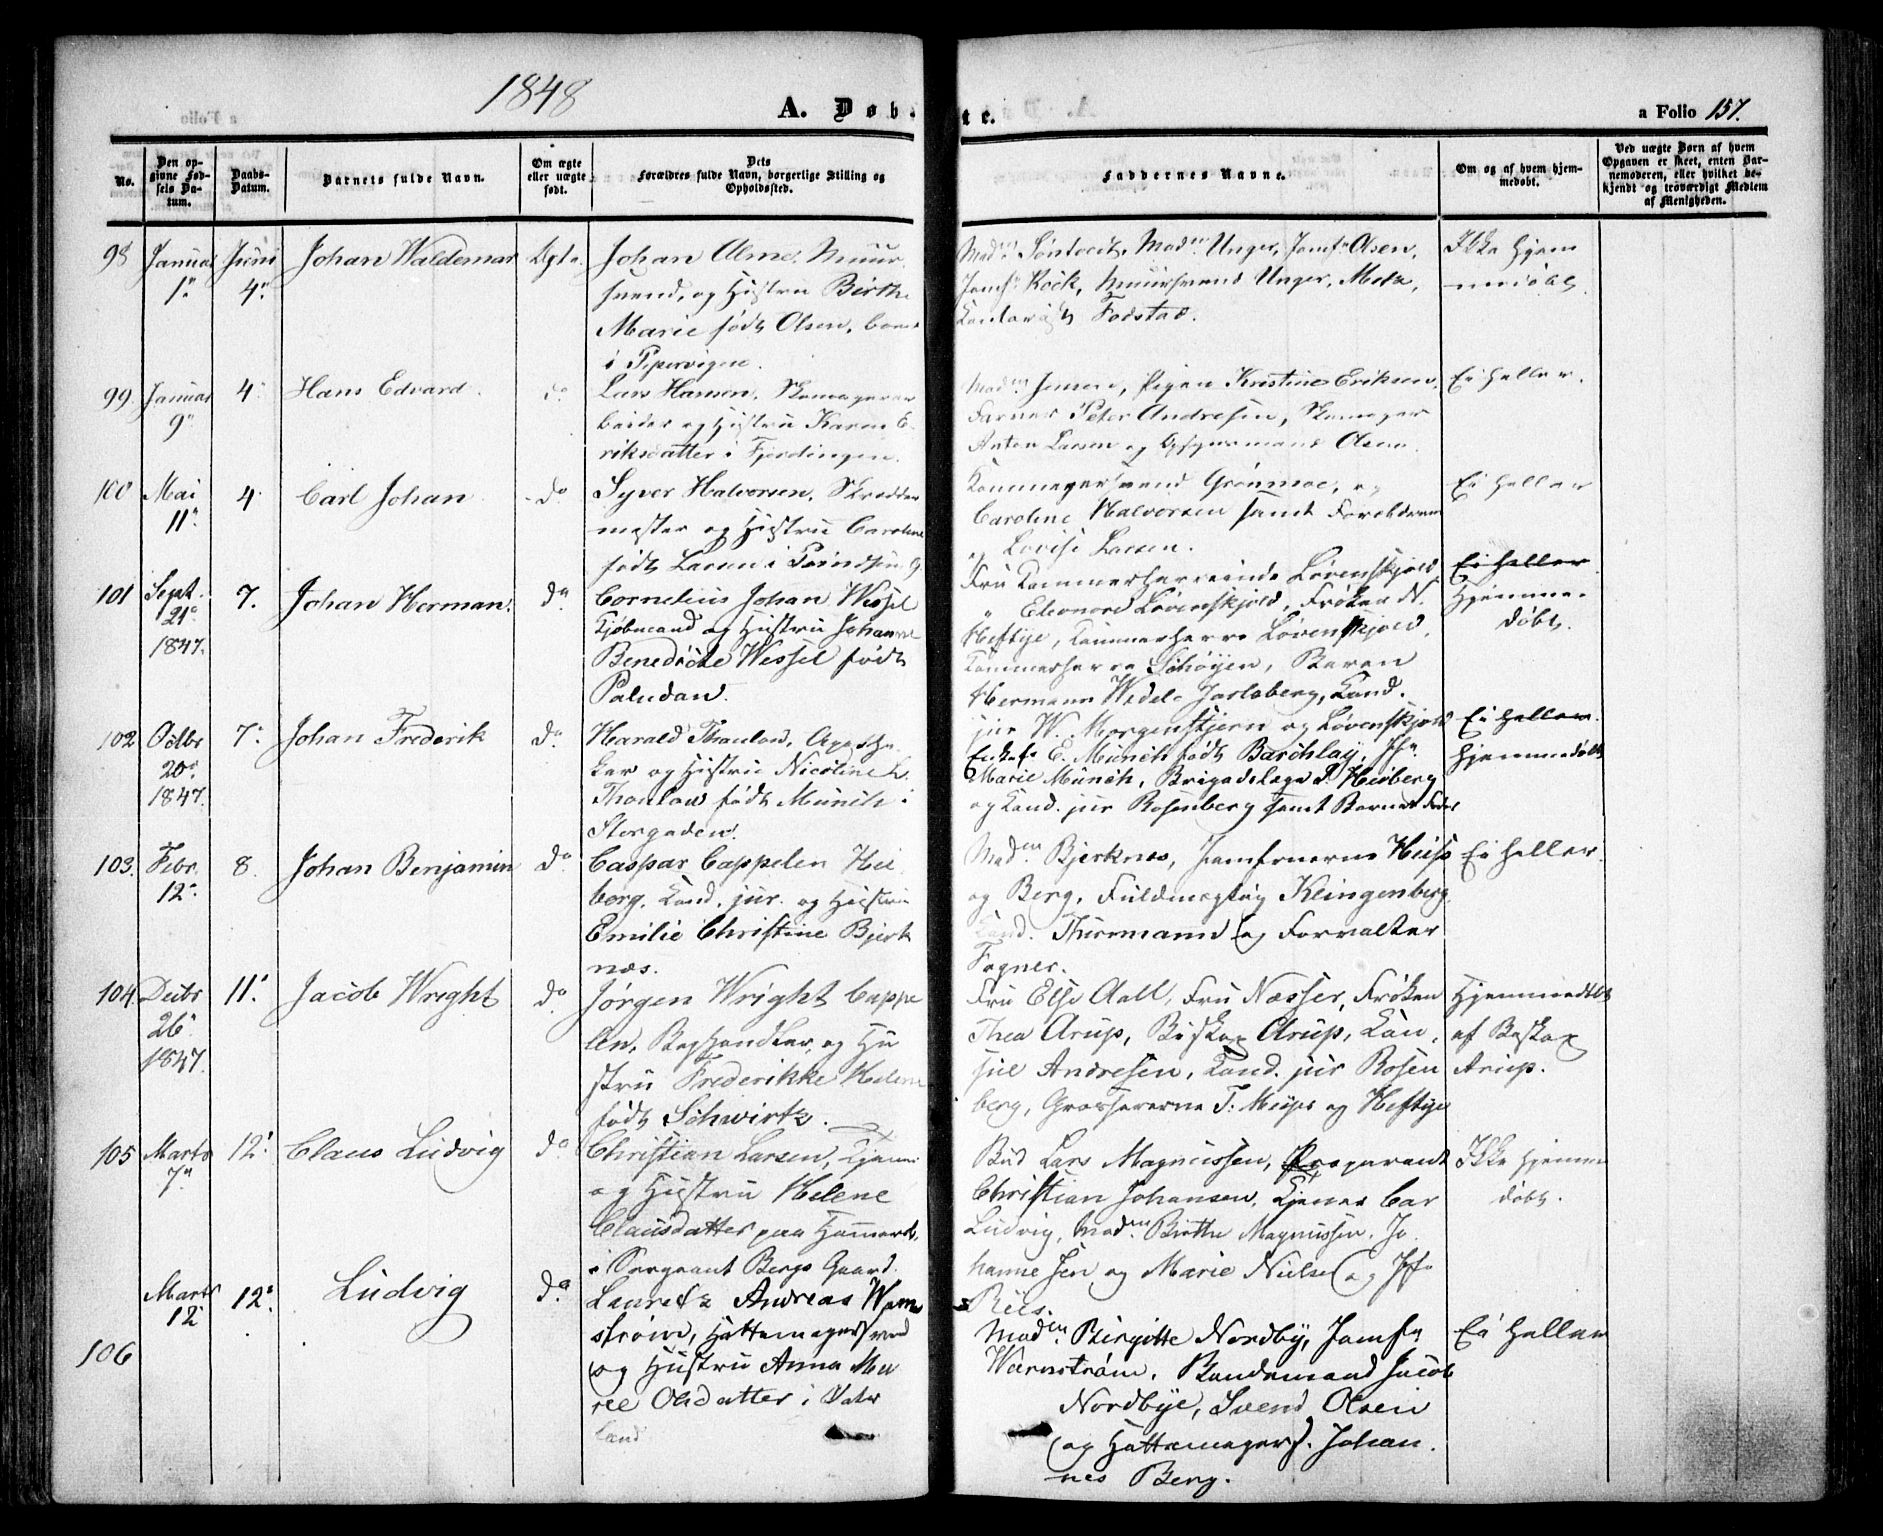 1848
A. Døbte.
a Folio 157.
No.
Den op-
givne Fød-
sels Da-
tum.
Daabs-
Datum.
Barnets fulde Navn.
Om ægte
eller uægte
født.
Dets
Forældres fulde Navn, borgerlige Stilling og
Opholdssted.
Faddernes Navne.
Om og af hvem hjem-
medøbt.
Ved uægte Børn af hvem
Opgaven er skeet, enten Bar-
nemoderen, eller hvilket be-
kjendt og troværdigt Medlem
af Menigheden.
98
Januar
1"
Juni
4"
Johan Waldemar
Ægte
Johan Olme, Muur
svend, og Hustru Birthe
Marie født Olsen, boer
i Pipervigen.
Madm Unger, Jomf Olsen,
Jomf Kock, Muursvend Unger,
Fodstad.
Ikke hjem
medøbt
99
Januar
9"
4"
Hans Edvard.
do
Lars Hansen, Skomagerar
beider og Hustru Karen E
riksdatter i Fjerdingen.
Madm Jensen, Pigen Kristine Eriksen,
Farver Peter Andresen, Skomager
Anton Larsen og Olsen
Ei heller.
100
Mai
11"
4"
Carl Johan
do
Syver Halvorsen, Skrædder
mester og Hustru Caroline
født Larsen i
Grønmoe, og
Caroline Halvorsen samt Forældrene
og Lovise Larsen.
Ei heller
101
Sept.
21"
1847.
7.
Johan Herman.
do
Cornelius Johan Wessel
Kjøbmand og Hustru Johanne
Benedicte Wessel født
Paludan.
Fru Kammerherreinde Løvenskjold
" Eleonore Løvenskjold, Frøken N.
Heftye, Kammerherre Løvenskjold,
Kammerherre Schøyen, Baron
Hermann Wedel-Jarlsberg, Kand.
jur W. Morgenstjern og Løvenskjold
Ei heller
Hjemme-
døbt.
102
Octbr
20"
1847.
7"
Johan Frederik
do
Harald Thaulow, Apothe
ker og Hustru Nicoline L.
Thaulow født Munch i
Storgaden.
Enkef E. Munch født Barchlay, Jfr
Marie Munch, Brigadelæge Heiberg
og Kand. jur Rosenberg samt Barnets Fader
Ei heller.
Hjemmedøbt
103.
Febr
12"
8.
Johan Benjamin
do
Caspar Cappelen Hei
berg, Kand. jur. og Hustru
Emilie Christine Bjerk
næs.
Madm Bjerknes, Jomfruerne Huss
og Berg, Fuldmægtig Klingenberg,
Kand. Thurmann og Forvalter
Fogner.
Ei heller.
104.
Decbr
26"
1847.
11"
Jacob Wright
do
Jørgen Wright Cappe
len, Boghandler, og Hu
stru Frederikke Helene
født Schwartz.
Fru Else Aall, Fru Næsser, Frøken
Thea Arup, Biskop Arup, Kon
sul Andresen, Kand. jur Rosen
berg, Grossererne T. Meyer og Heftye
Hjemmedøbt
af Biskop
Arup.
105
Marts
7"
12"
Claus Ludvig
do
Christian Larsen, Tjener
og Hustru Helene
Clausdatter paa
i Sergeant Bergs Gaard.
Bud Lars Magnussen,
Christian Johansen, Tjener Carl
Ludvig, Madm Birthe Magnussen, Jo
hanne Jen og Marie Nielse og Jfr
Riis.
Ikke hjemme
døbt.
106
Marts
12
12"
Ludvig
do
Lauretz Andreas Wærn
strøm, Hattemagersvend
og Hustru Anna Ma
rie Olsdatter i Vater
land
Madm Birgitte Nordby, Jomfr
Wærnstrøm, Bandemand Jacob
Nordbye, Svend Olsen
og Hattemagers. Johan
nes Berg.
Ei heller